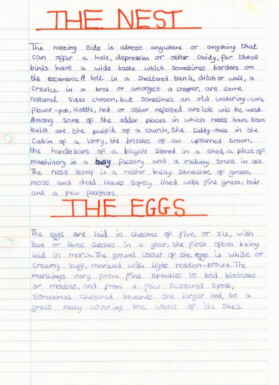 THE NEST
The nesting side is almost anywhere or anything that
can offer a hole, depression or other cavity, for these
birds have a wide taste which sometimes borders on
the eccentric. A hole in a sheltered bank, ditch or wall, a
crevice in a tree or amongst a creeper, are some
natural sites chosen, but sometimes an old watering-can,
flower-pot, kettle, hat or other rejected article will be used.
Among some of the odder places in which nests have been
built are the pulpit of a church, the
cabin of a lorry, the bristles of an upturned broom,
the handlebars of a bicycle stored in a shed, a piece of
machinery in a busy factory and a makeup brush in use.
The nest itself is a rather bulky structure of grass,
moss and dead leaves lined with fine grass, hair
and a few feathers.
THE EGGS
The eggs are laid in clutches of five or six, with
two or three clutches in a year, the first often being
laid in march. The ground colour of the eggs is white or
creamy buff, marked with light reddish-brown. The
markings vary from fine speckles to bold blotches
or mosaic, and from a few scattered spots,
sometimes clustered towards the larger end, to a
great many covering the whole of its shell